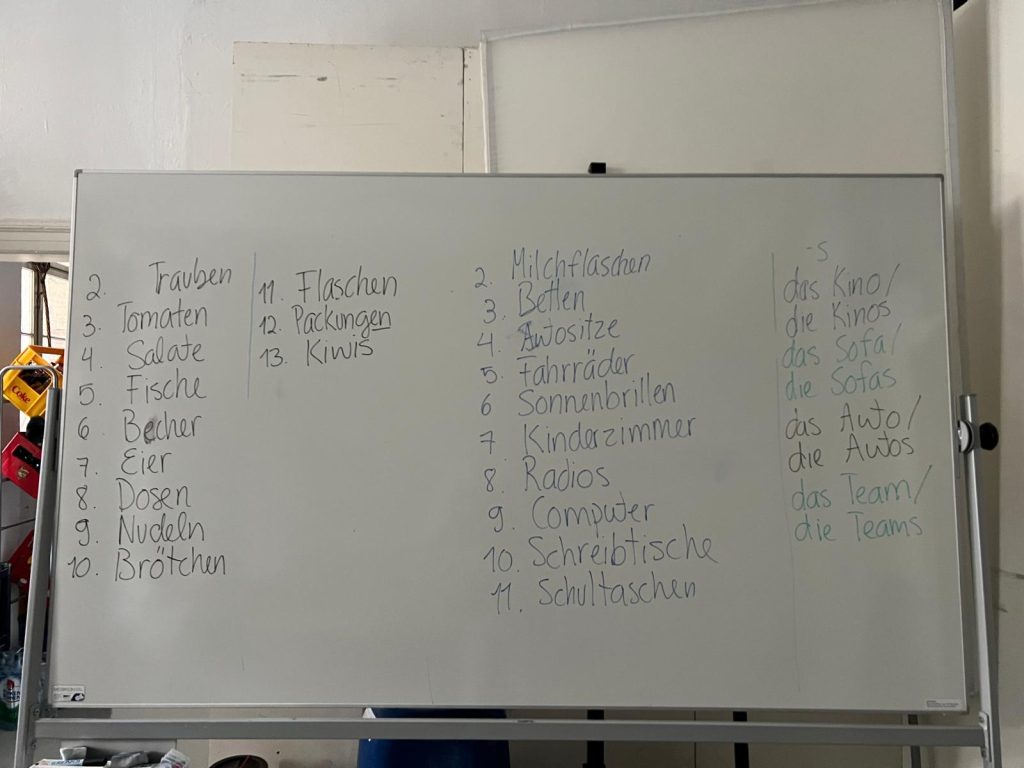 2. Trauben
3. Tomaten
4. Salate
5. Fische
6 Becher
7. Eier
8. Dosen
9. Nudeln
10. Brötchen
11. Flaschen
12. Packungen
13. Kiwis
2. Milchflaschen
3. Betten
4. Autositze
5. Fahrräder
6 Sonnenbrillen
7 Kinderzimmer
8. Radios
9. Computer
10. Schreibtische
11. Schultaschen
-s
das Kino/
die Kinos
das Sofa/
die Sofas
das Auto/
die Autos
das Team/
die Teams
Coke